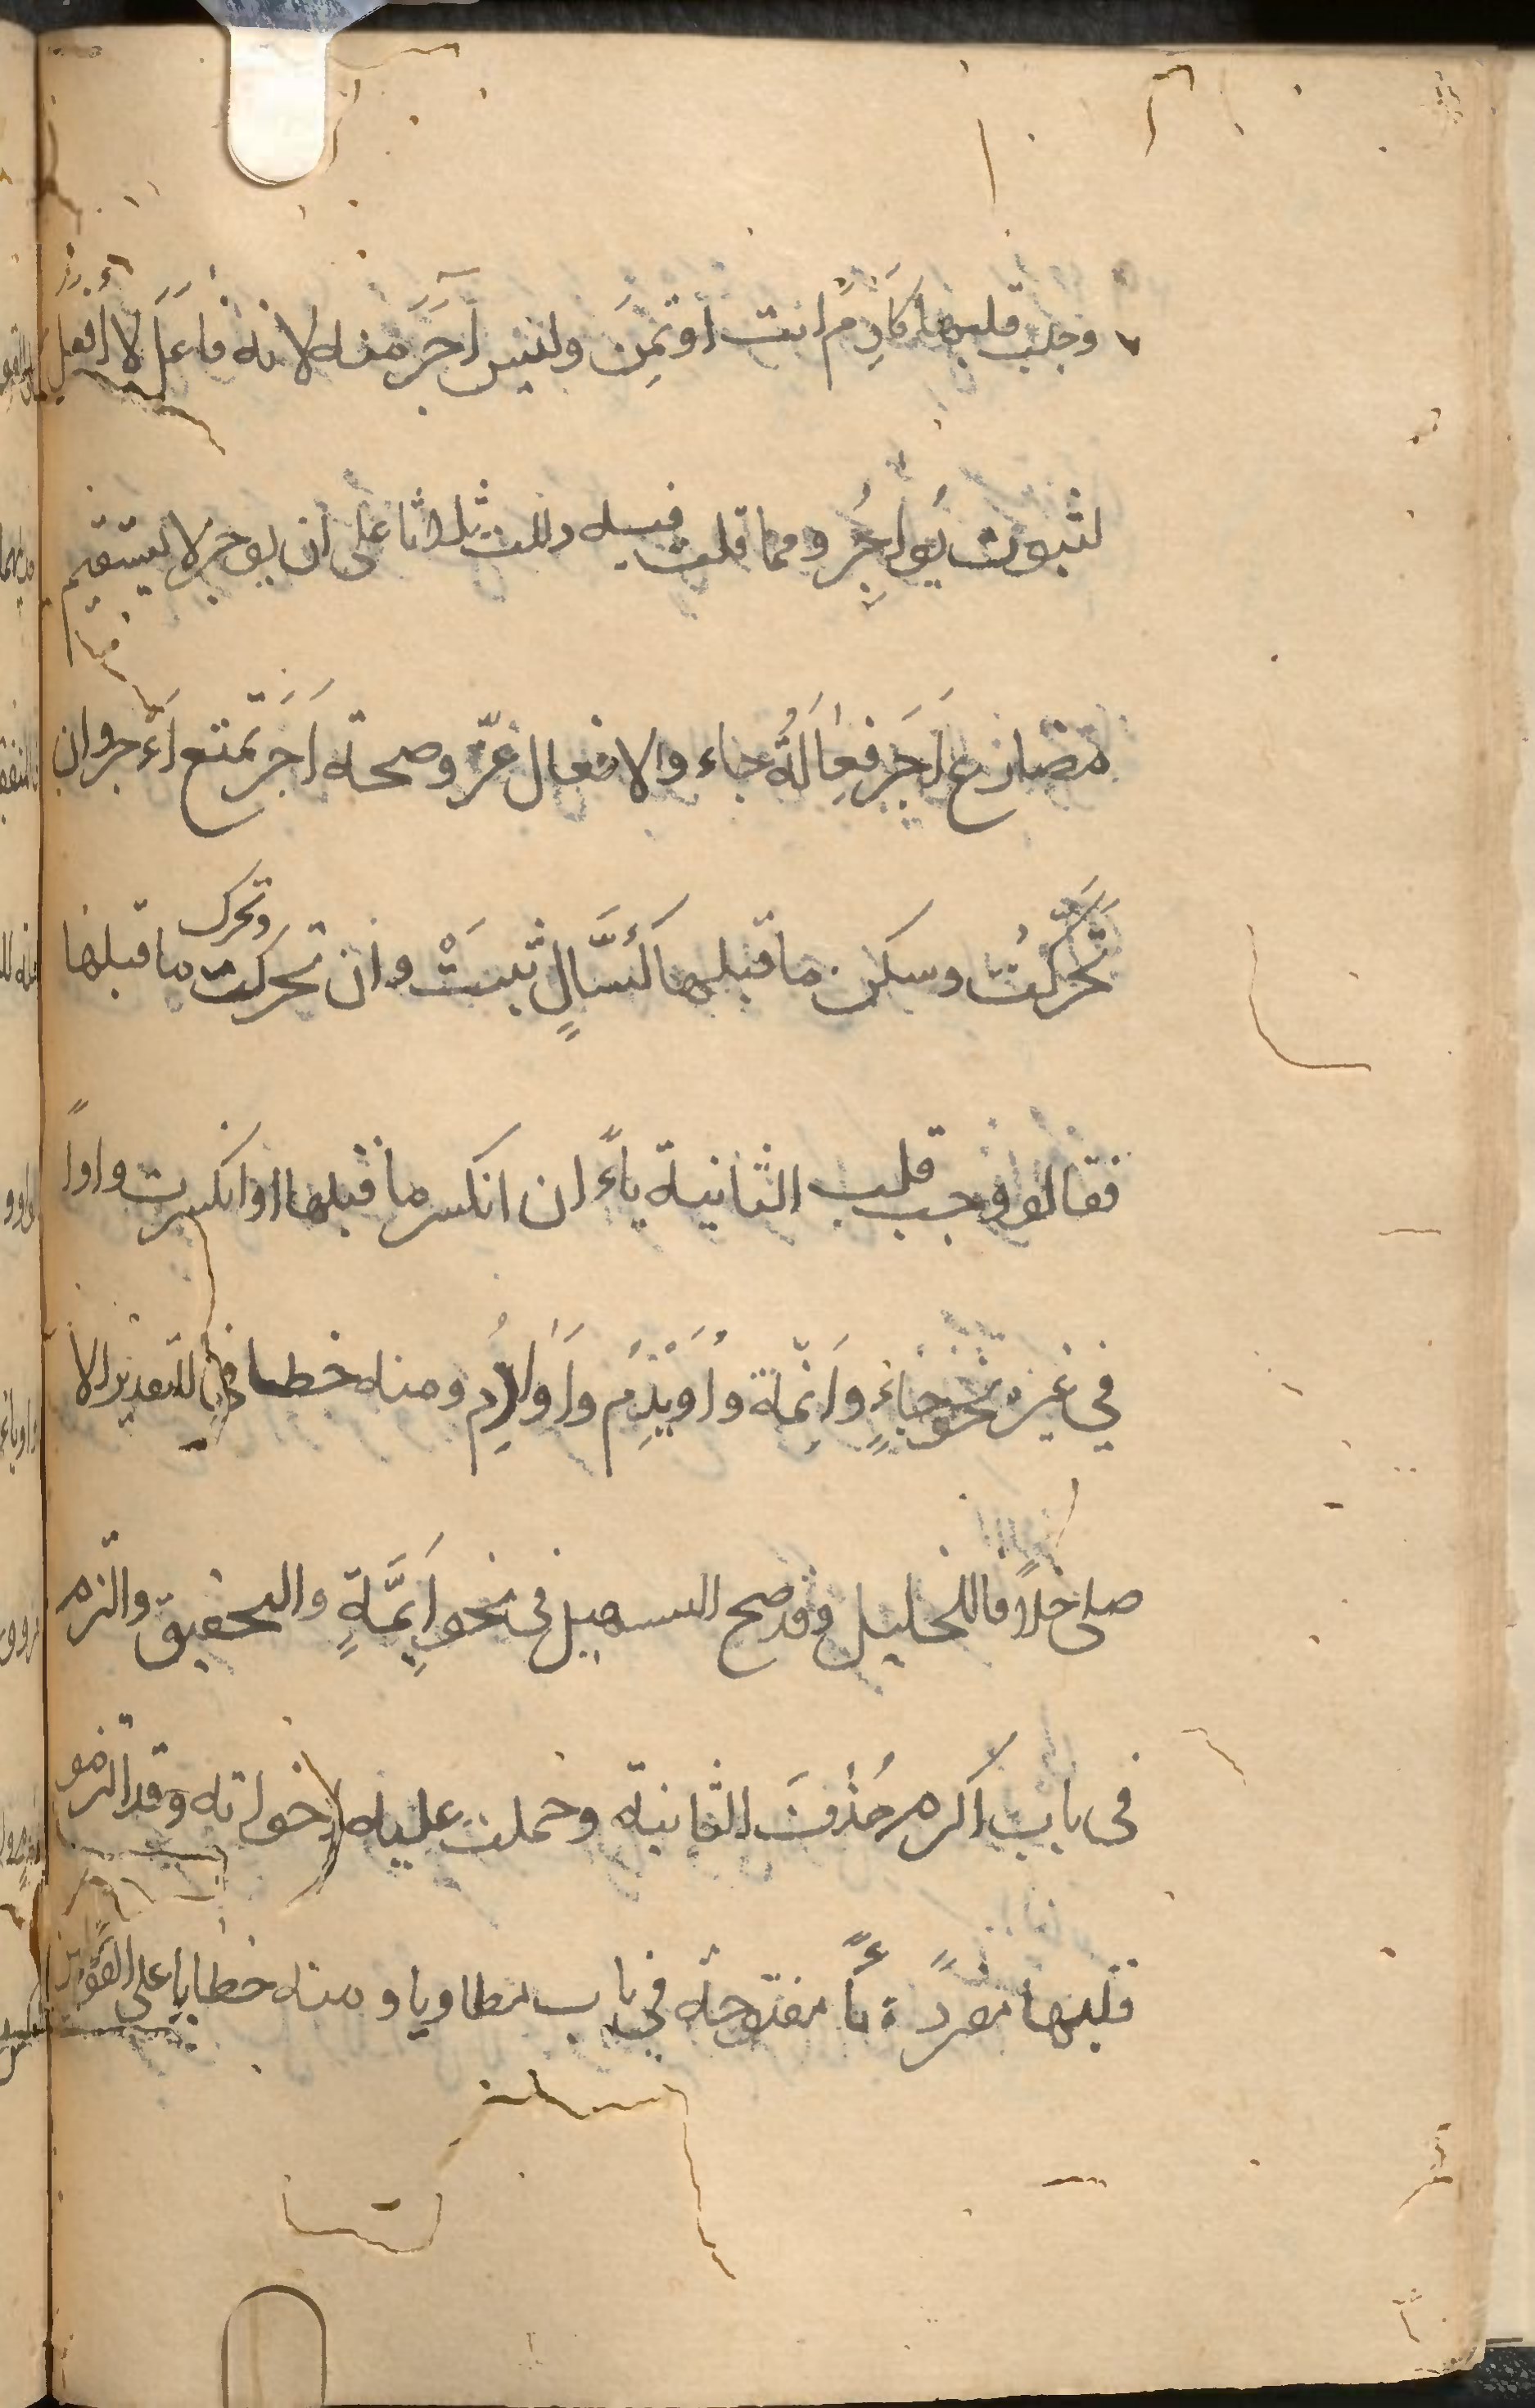 وجب قلبها كآدم ايت اوتمن وليس آجر منه لانه فاعل لا افعل
لثبوت يواجر ومما قلت فيه دللت ثلاثا على ان يوجر لا يستقيم
مضارع آجر فعالة جاء والافعال عز وصحة آجر تمنع أءجر وان
تحركت وسكن ما قبلها كسأال ثبتت وان تحركت وتحرك ما قبلها
فقالو وجب قلب الثانية ياء ان انكسر ما قبلها او انكسرت واوا
في غيره نحو جاء وائمة واويدم واوادم ومنه خطايا في التقدير الا
صلى خلافا للخليل وقد صح التسهيل في نحو ايمة والتحقيق والتزم
في باب اكرم حذف الثانية وحملت عليه اخواته وقد التزمو
قلبها مفردة ياء مفتوحة في باب مطاويا ومنه خطايا على القولين